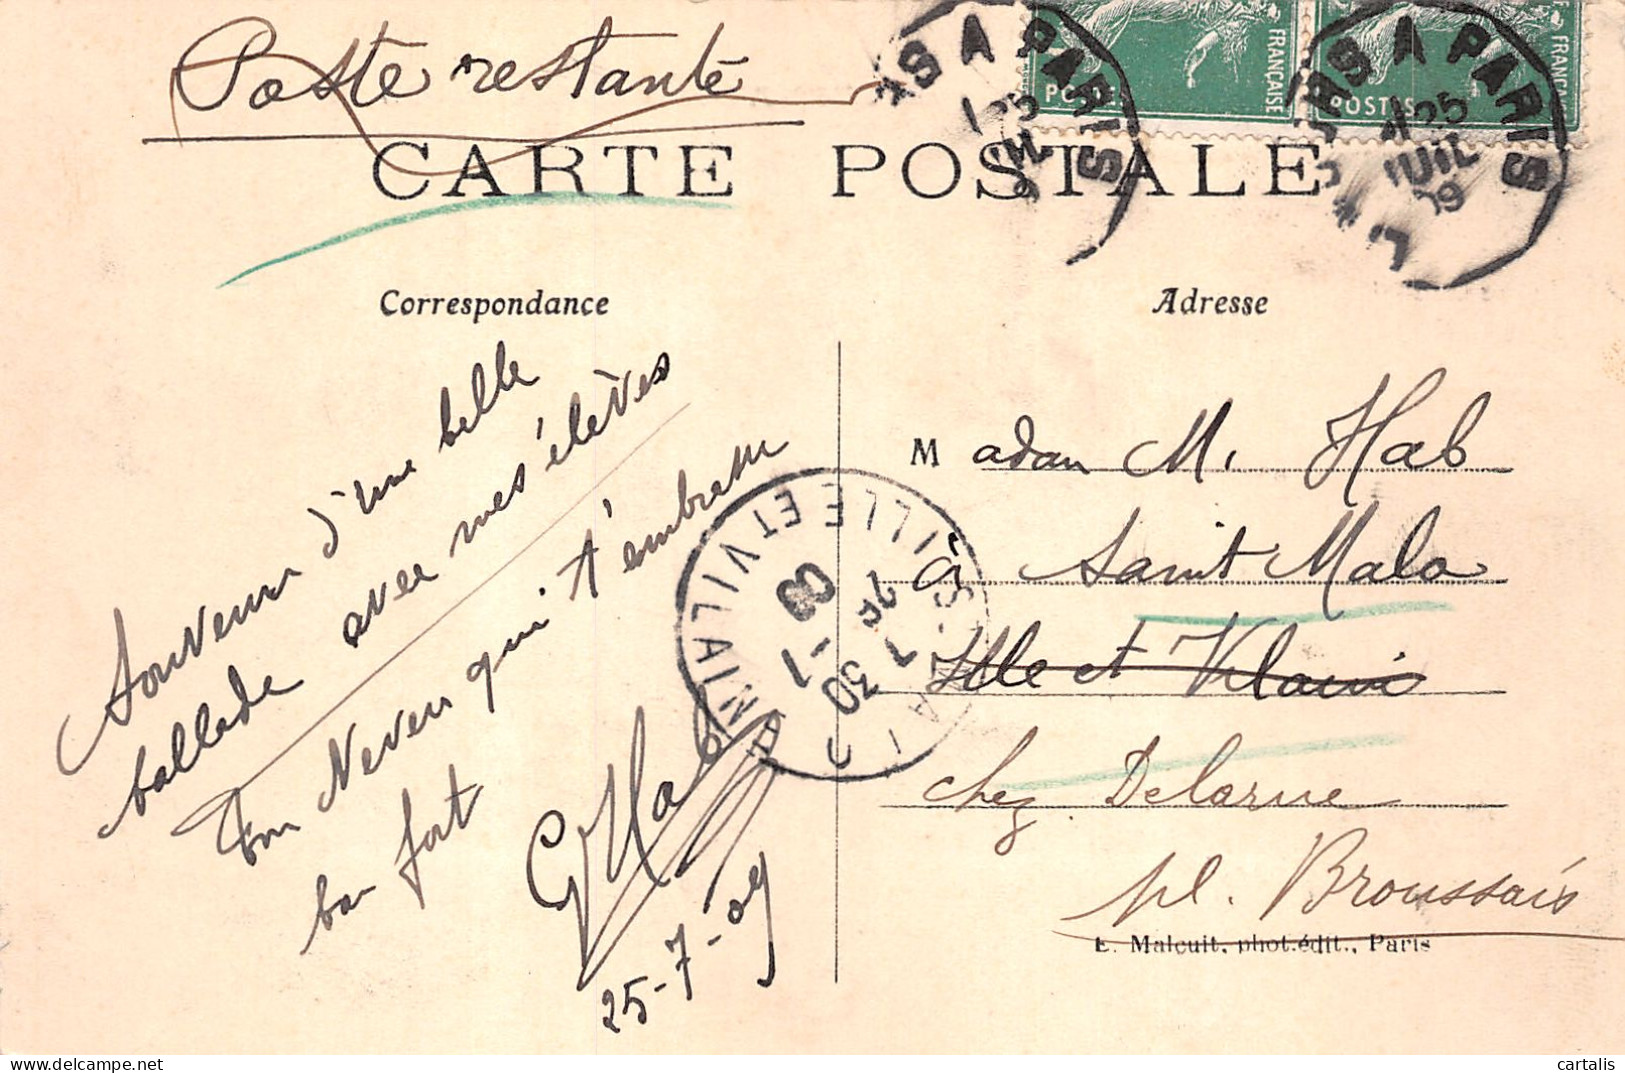 Poste restante
CARTE POSTALE
FRANÇAISE
POSTES
AS A PARIS
25
JUIL
FRANÇ
POSTES
AS A PARIS
25
JUIL
09
Correspondance
Adresse
Souvenir d'une belle
ballade avec mes élèves
Ton Neveu qui t'embrasse
bon fort
G Hab
25-7-09
ILLE ET VILAINE
7 30
26 -7
09
M adam M. Hab
à Saint Malo
Ille et Vilaine
chez Delarue
pl. Broussais
E. Malcuit, phot.édit., Paris
cartalis
delcampe.net